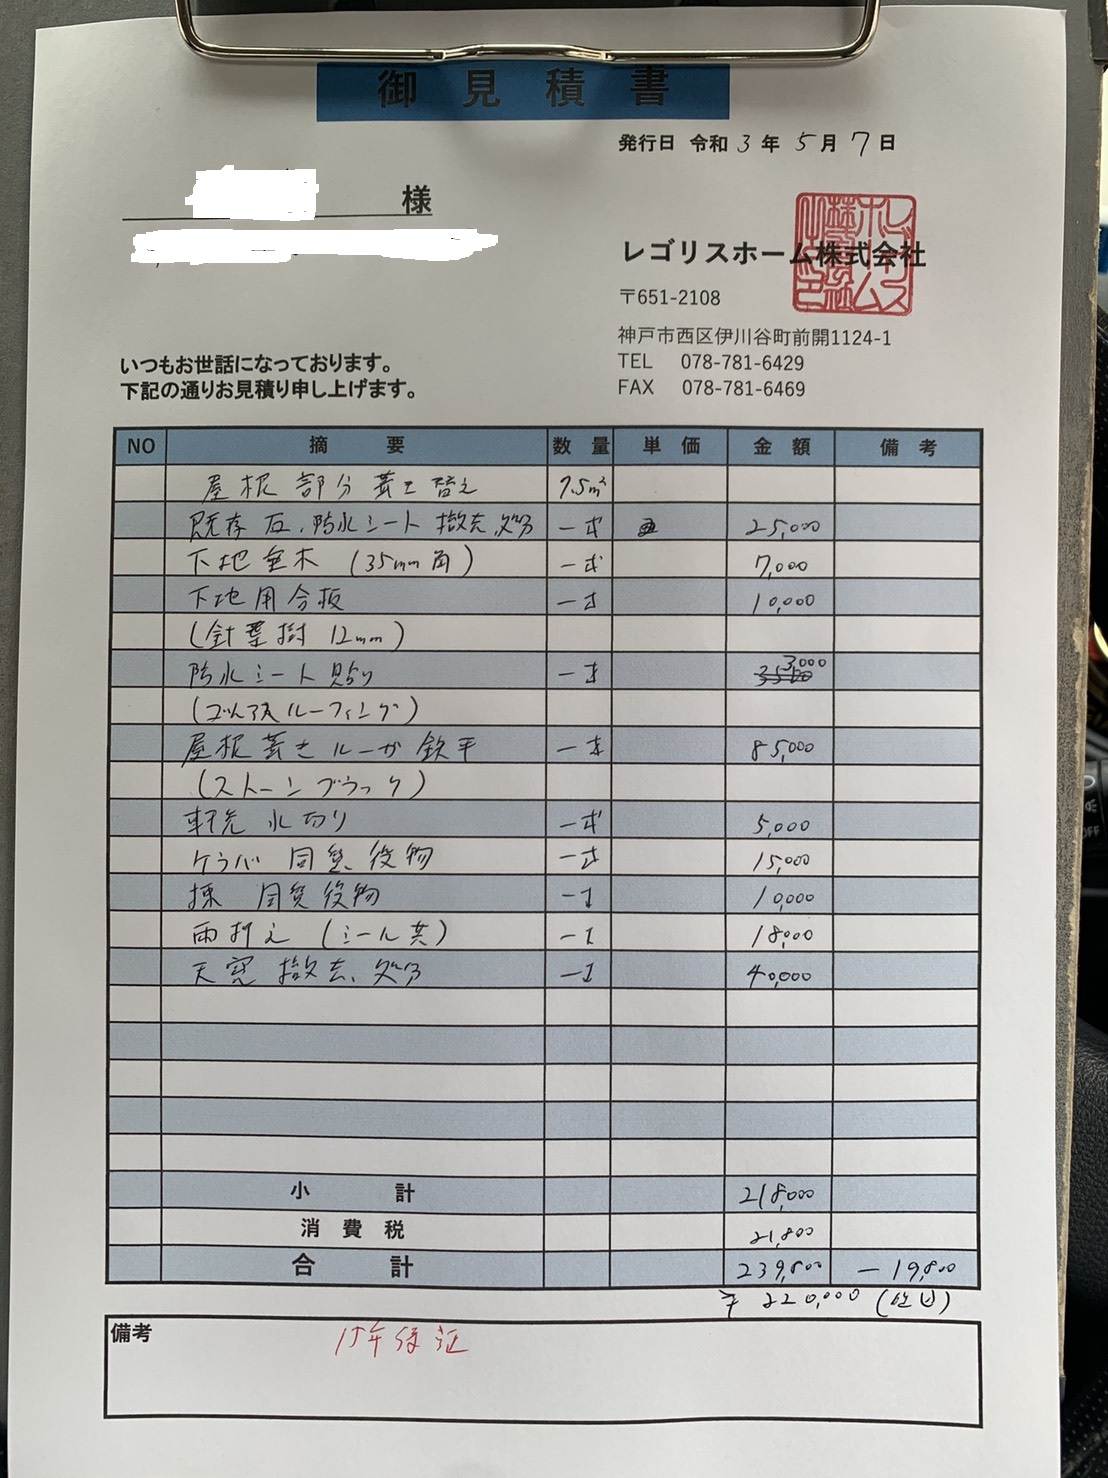 御見積書
発行日 令和 3 年 5 月 7 日
様
レゴリスホーム株式会社
〒651-2108
神戸市西区伊川谷町前開1124-1
TEL 078-781-6429
FAX 078-781-6469
いつもお世話になっております。
下記の通りお見積り申し上げます。
NO 摘要 数量 単価 金額 備考
屋根部分葺き替え 7.5㎡
既存瓦、防水シート撤去処分 一式 25,000
下地垂木 (35mm角) 一式 7,000
下地用合板 一式 10,000
(針葉樹 12mm)
防水シート貼り 一式 3,000
(ゴムアスルーフィング)
屋根葺き ルーガ鉄平 一式 85,000
(ストーンブラック)
軒先水切り 一式 5,000
ケラバ 同質役物 一式 15,000
棟 同質役物 一式 10,000
雨押え (シール共) 一式 18,000
天窓撤去、処分 一式 40,000
小計 218,000
消費税 21,800
合計 239,800 -19,800
¥220,000 (税込)
備考
15年保証